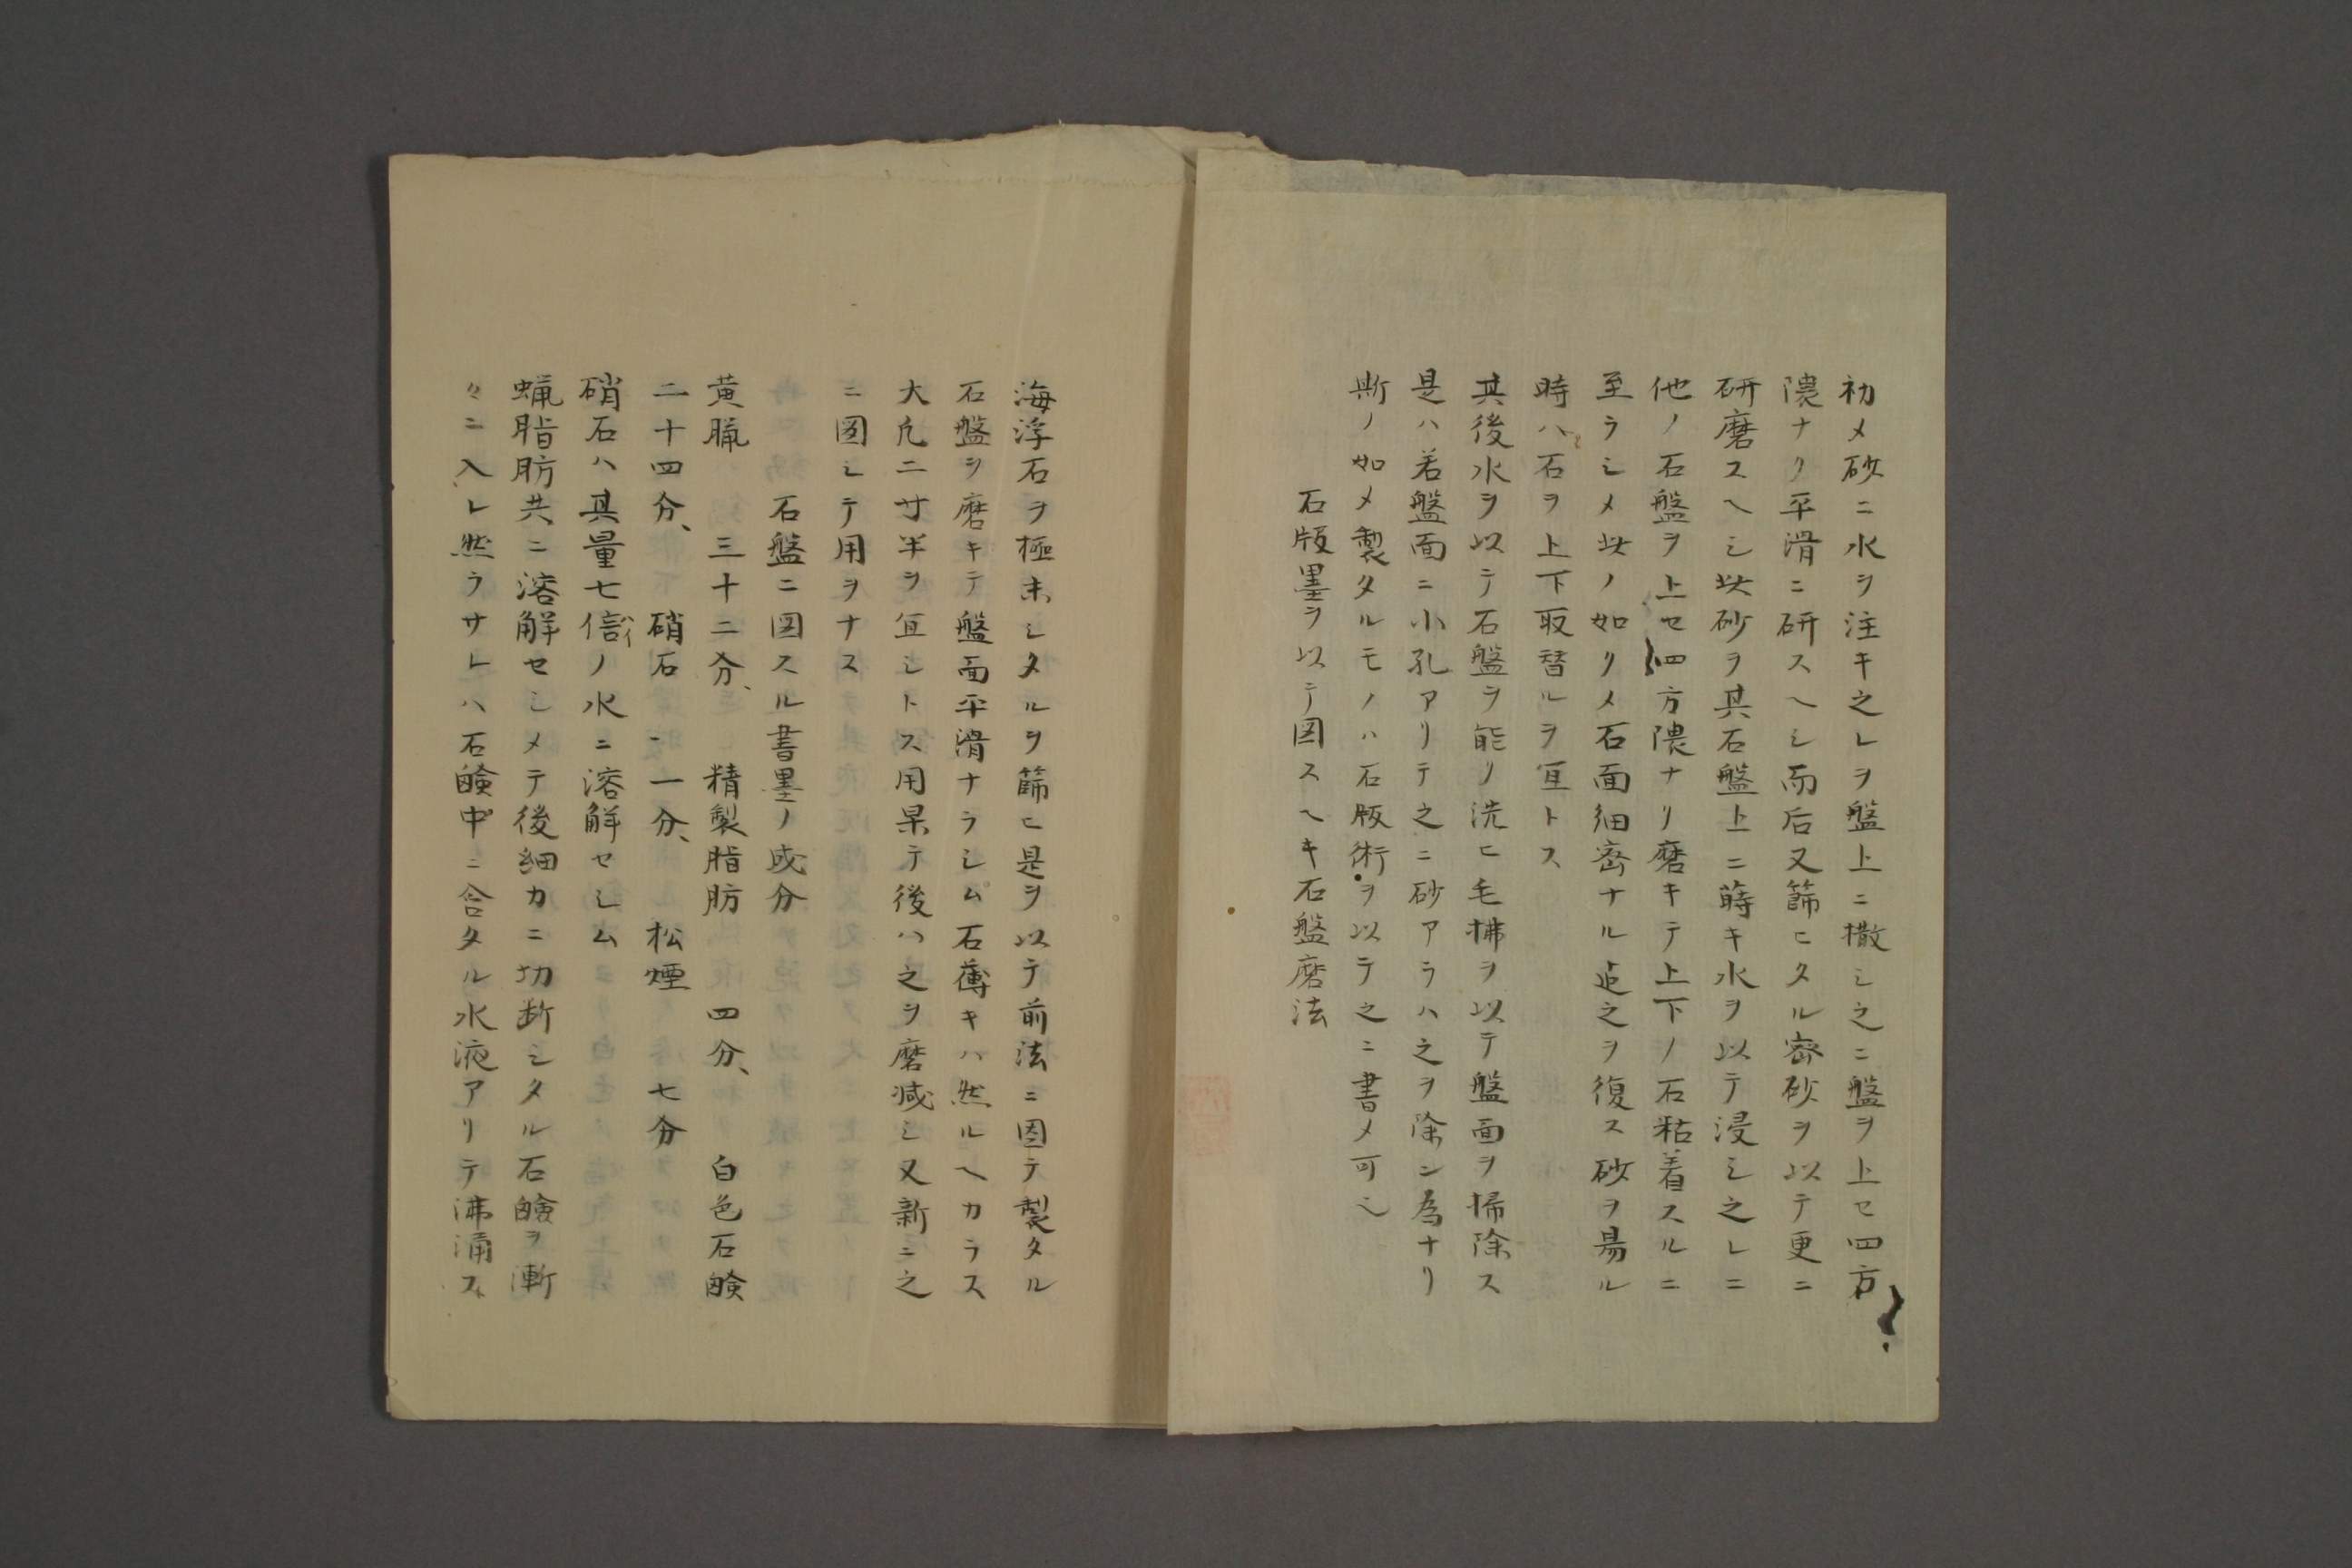 初メ砂ニ水ヲ注キ之レヲ盤上ニ撒シ之ニ盤ヲ上セ四方
隈ナク平滑ニ研スヘシ而后又篩ヒタル密砂ヲ以テ更ニ
研磨スヘシ此砂ヲ其石盤上ニ蒔キ水ヲ以テ浸シ之レニ
他ノ石盤ヲ上セ四方隈ナリ磨キテ上下ノ石粘着スルニ
至ラシメ此ノ如クメ石面細密ナル迄之ヲ復ス砂ヲ易ル
時ハ石ヲ上下取替ルヲ宜トス
其後水ヲ以テ石盤ヲ能ク洗ヒ毛拂ヲ以テ盤面ヲ掃除ス
是ハ若盤面ニ小孔アリテ之ニ砂アラハ之ヲ除ン為ナリ
斯ノ如メ製タルモノハ石版術ヲ以テ之ニ書メ可シ
石版墨ヲ以テ図スヘキ石盤磨法
海浮石ヲ極末シタルヲ篩ヒ是ヲ以テ前法ニ因テ製タル
石盤ヲ磨キテ盤面平滑ナラシム石薄キハ然ルヘカラス
大凡二寸半ヲ宜シトス用果テ後ハ之ヲ磨滅シ又新ニ之
ニ図シテ用ヲナス
石盤ニ図スル書墨ノ成分
黄臘 三十二分、 精製脂肪 四分、 白色石鹸
二十四分、 硝石 一分、 松煙 七分
硝石ハ其量七倍ノ水ニ溶解セシム
蝋脂肪共ニ溶解セシメテ後細カニ切断シタル石鹸ヲ漸
々ニ入レ然ラサレハ石鹸中ニ含タル水液アリテ沸涌ス